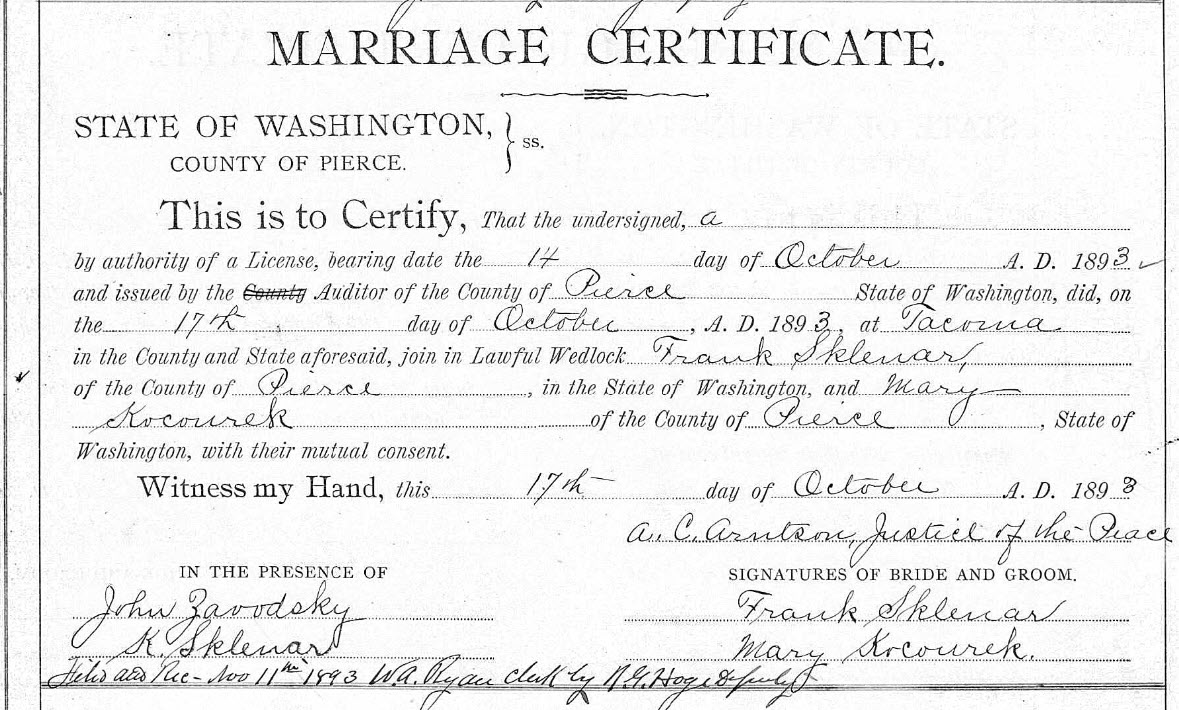 MARRIAGE CERTIFICATE.
STATE OF WASHINGTON, } ss.
COUNTY OF PIERCE.
This is to Certify, That the undersigned, a
by authority of a License, bearing date the 14 day of October A. D. 1893
and issued by the County Auditor of the County of Pierce State of Washington, did, on
the 17th day of October, A. D. 1893, at Tacoma
in the County and State aforesaid, join in Lawful Wedlock Frank Sklenar,
of the County of Pierce, in the State of Washington, and Mary
Kocourek of the County of Pierce, State of
Washington, with their mutual consent.
Witness my Hand, this 17th day of October A. D. 1893
A. C. Arntson, Justice of the Peace
IN THE PRESENCE OF
John Zavodsky
K. Sklenar
SIGNATURES OF BRIDE AND GROOM.
Frank Sklenar
Mary Kocourek.
Filed and Rec- Nov 11th 1893 W.A. Ryan clerk by Deputy